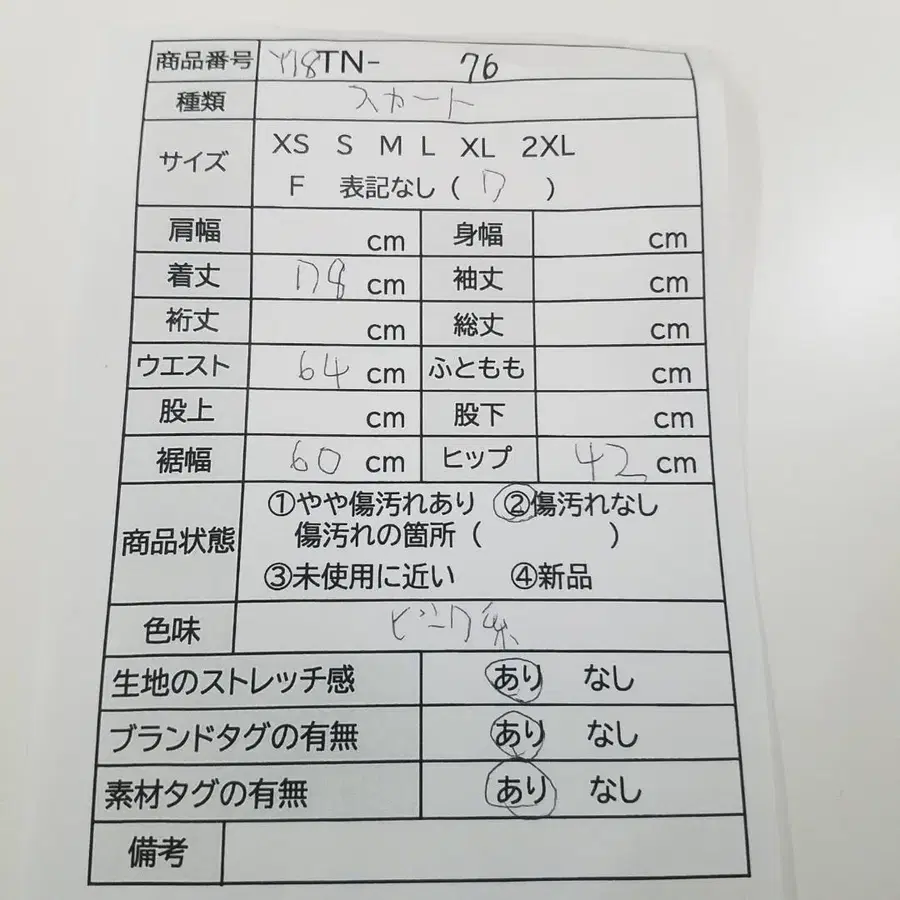 商品番号 Y18TN- 76
種類 スカート
サイズ XS S M L XL 2XL
F 表記なし ( 7 )
肩幅 cm 身幅 cm
着丈 78 cm 袖丈 cm
裄丈 cm 総丈 cm
ウエスト 64 cm ふともも cm
股上 cm 股下 cm
裾幅 60 cm ヒップ 42 cm
商品状態 ①やや傷汚れあり ②傷汚れなし
傷汚れの箇所 ( )
③未使用に近い ④新品
色味 ピンク系
生地のストレッチ感 あり なし
ブランドタグの有無 あり なし
素材タグの有無 あり なし
備考